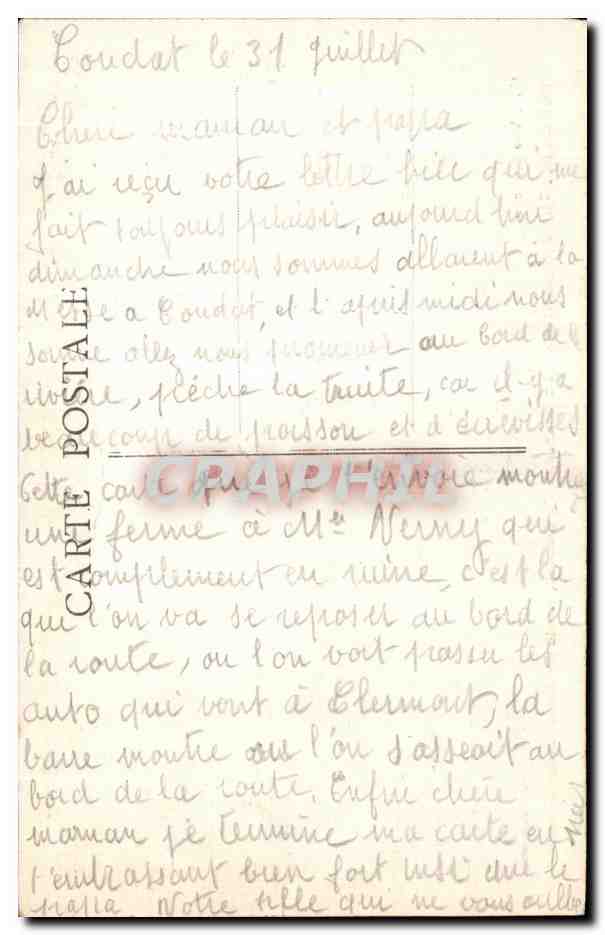 Condat le 31 juillet
Chere maman et papa
J'ai reçu votre lettre hier qui me
fait toujours plaisir, aujourd'hui
dimanche nous sommes allaient à la
Messe a Condat, et l'apres midi nous
somme allez nous promener au bord de la
rivière, pêche la truite, car il y a
beaucoup de poisson et d'écrevisses
Cette carte que je t'envoie montre
une ferme à Me Verny qui
est complement en ruine, c'est la
que l'on va se reposer au bord de
la route, ou l'on voit passer les
auto qui vont à Clermont, la
barre montre ou l'on s'asseoit au
bord de la route. Enfin chere
maman je termine ma carte en
t'embrassant bien fort ainsi que le
papa. Votre fille qui ne vous oublie
CARTE POSTALE
CPAPHIL